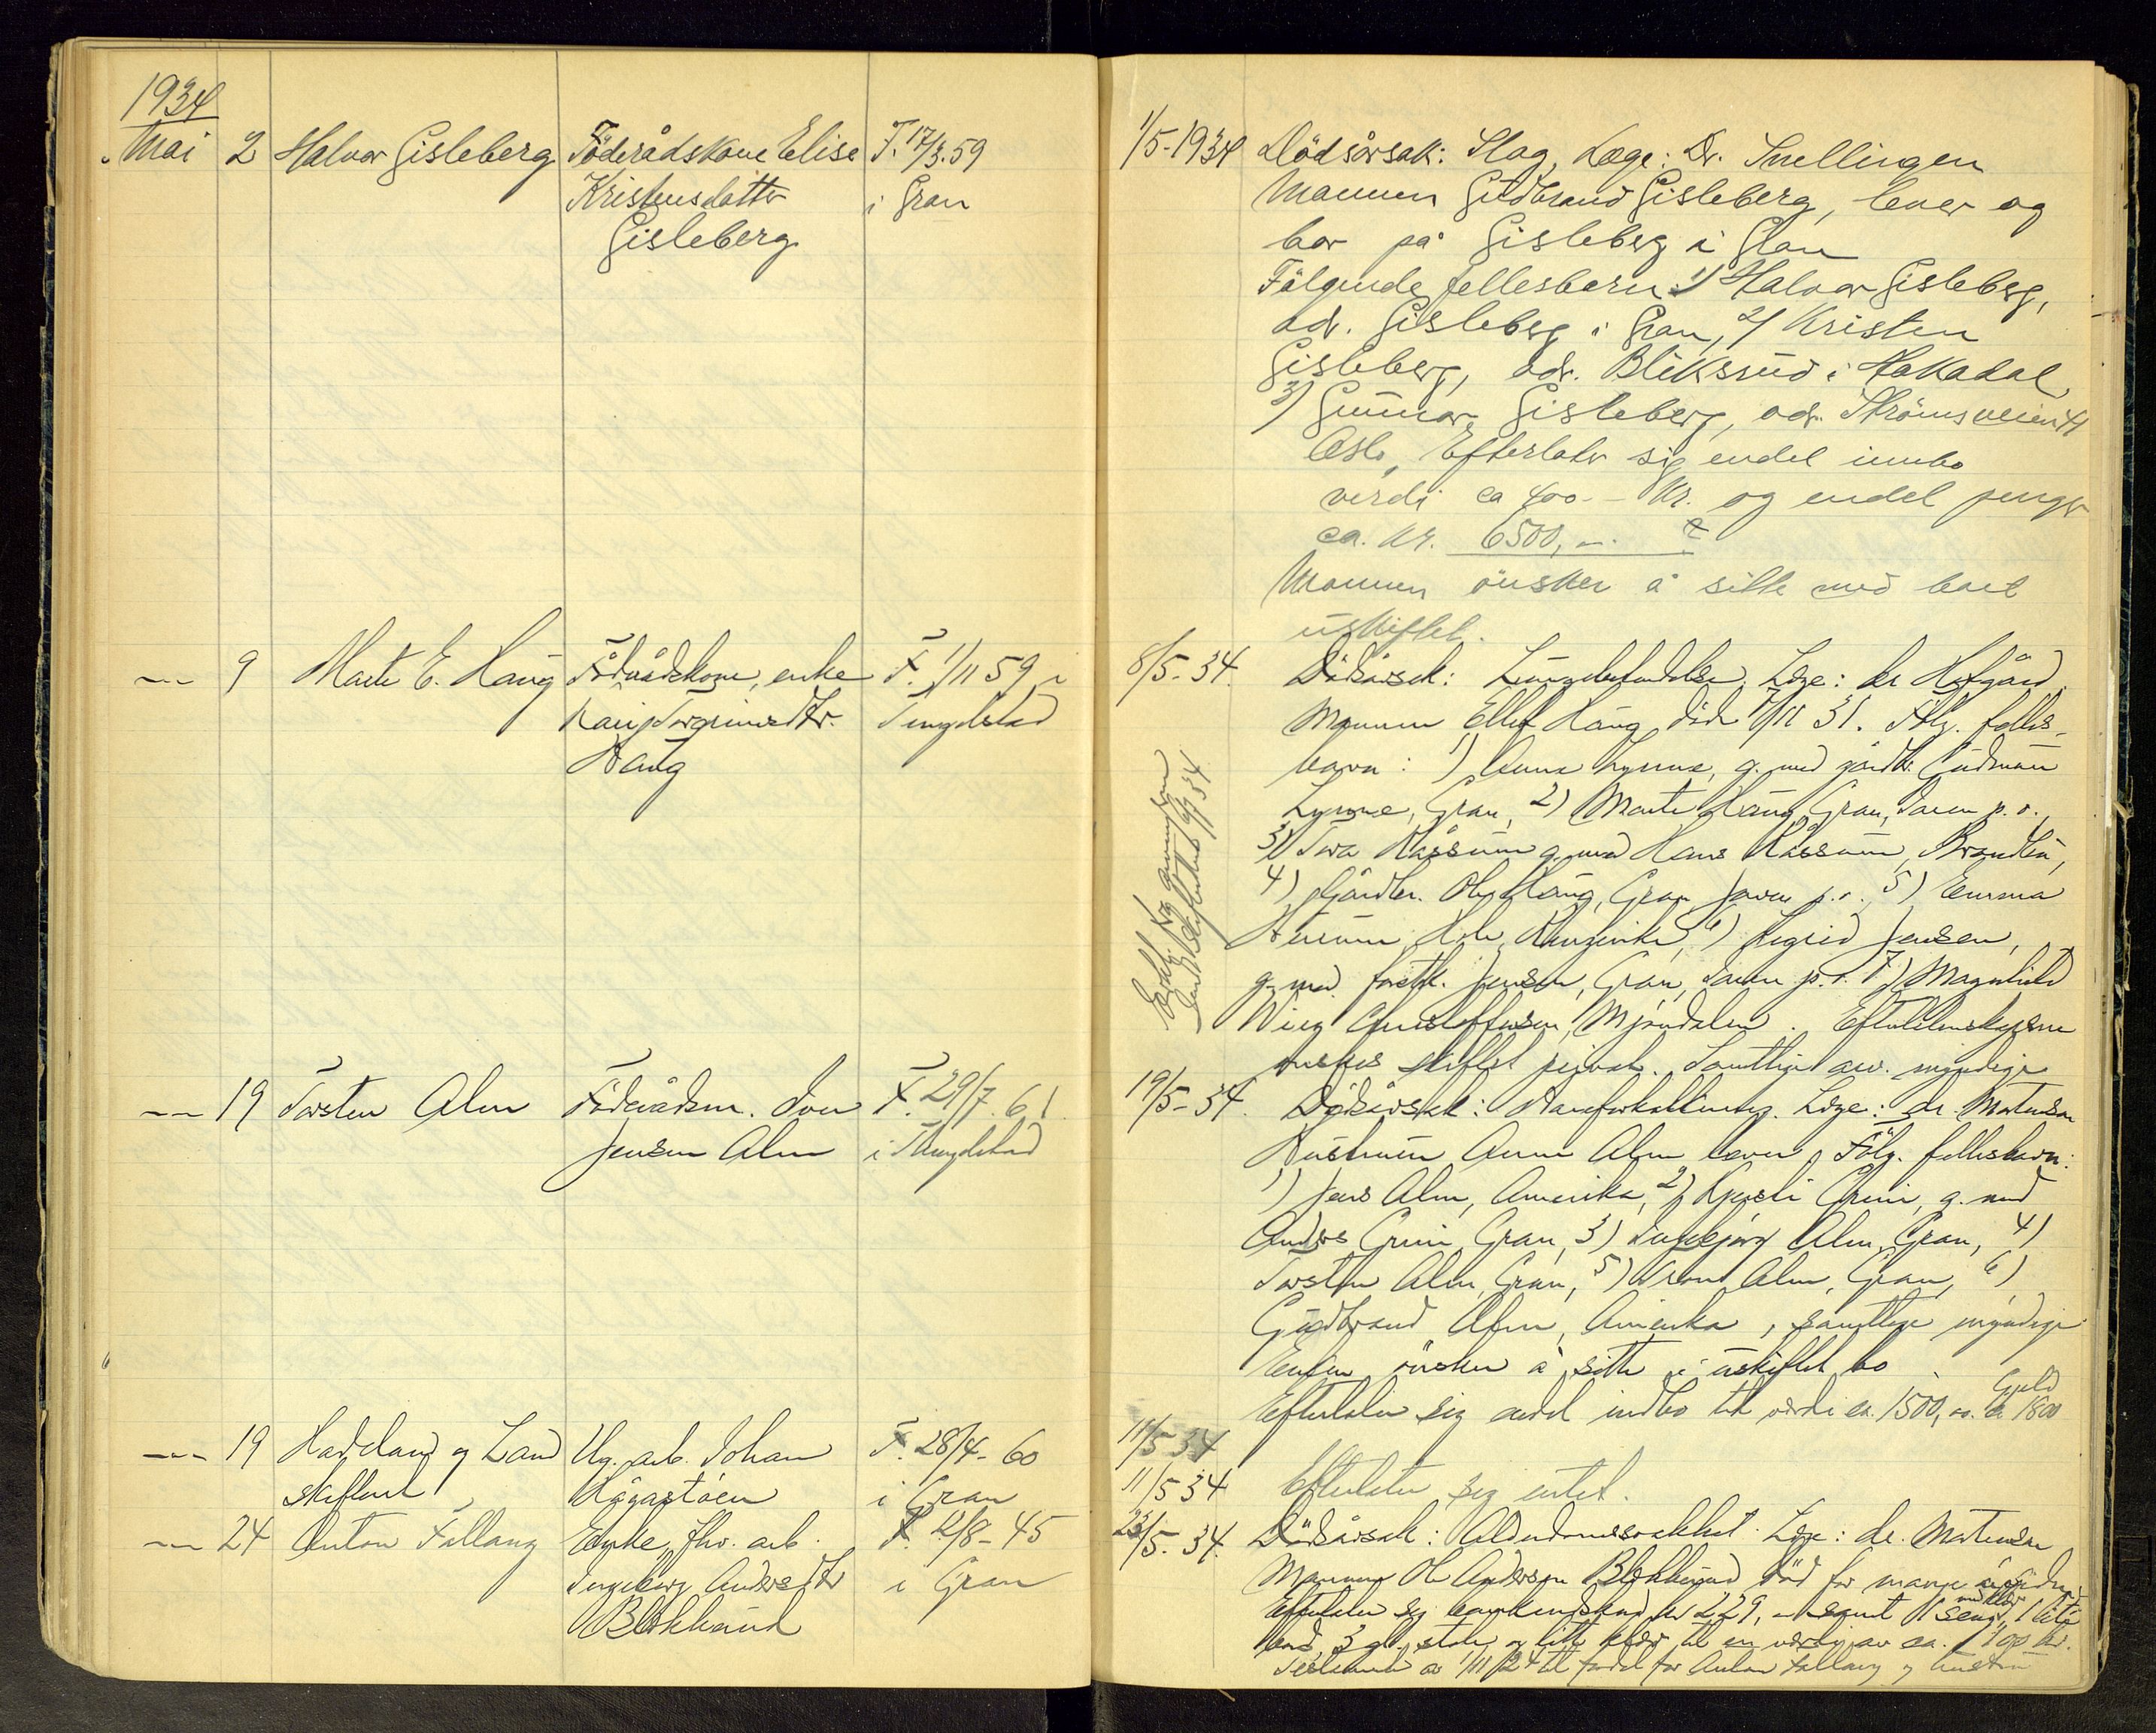 1934
Mai 2 Halvor Gisleberg Föderådskone Elise F. 17/3.59
Kristensdatter i Gran
Gisleberg
1/5-1934 Dödsårsak: Slag, Læge: Dr. Snellingen
Mannen Gudbrand Gisleberg, lever og
bor på Gisleberg i Gran
Fölgende fellesbarn: 1/ Halvor Gisleberg,
adr. Gisleberg i Gran, 2/ Kristen
Gisleberg, adr. Blikssrud i Hakadal
3) Gunnar Gisleberg, adr. Strömsveien 41
Oslo, Efterlater sig endel innbo
verdi ca 400.- Kr. og endel penger
ca. kr. 6500,-.
Mannen önsker å sitte med boet
uskiftet.
— 9 Marte E. Haug Föderådskone, enke F. 1/11 59 i
Kari Torgrimsdtr. Tingelstad
Haug
8/5-34. Dödsårsak: Lungebetendelse, Læge: dr Hofgård
Mannen Ellef Haug död 17/11 31. Fölg. felles-
barn: 1) Anna Lynne, g. med gårdbr. Gudmun
Lynne, Gran, 2) Marte Haug, Gran, Jaren p.o.
3) Tora Råssum g. med Hans Råssum, Brandbu,
4) Gårdbr. Ole Haug, Gran Jaren p.o. 5) Emma
Hole, Ringerike, 6) Sigrid Jensen,
g. med Jensen, Gran, Jaren p.o. 7) Magnhild
Wiig Mjøndalen. Efterlatenskapene
önskes skiftet privat. Samtlige arv. myndige
den 9/7 34
— 19 Torsten Alm Föderådsm. Iver F. 29/7. 61
Jensen Alm i Tingelstad
19/5-34. Dödsårsak: Læge: dr. Mortensen
Hustruen Anne Alm lever, Fölg. fellesbarn:
1) Jens Alm, Amerika, 2) Kjersti Grini, g. med
Anders Grini, Gran, 3) Ingebjørg Alm, Gran, 4)
Torsten Alm, Gran, 5) Alm, Gran, 6)
Gudbrand Alm, Amerika, samtlige myndige
Enken önsker å sitte i uskiftet bo
Efterlater sig endel indbo til verdi ca. 1500,00. Gjeld ca. 1800
— 19 Hadeland og Land Ug. arb. Johan F. 28/4-60
skifterett Hågåstøen i Gran
11/5 34
11/5 34 Efterlater sig intet.
— 24 Anton Fallang Enke, fhv. arb. F. 12/8-45
Ingeborg Andersdtr i Gran
Blekkerud
23/5-34. Dödsårsak: Alderdomssvakhet. Læge: dr. Mortensen
Mannen Ole Andersen Blekkerud död for mange år siden.
Efterlater sig bankinnskud kr 229,- samt 1 seng med klær, 1 lite
bord, 3 gl. stoler og litt klær til en verdi av ca. 100 kr.
Testament av 1/11 24 til fordel for Anton Fallang og hustru